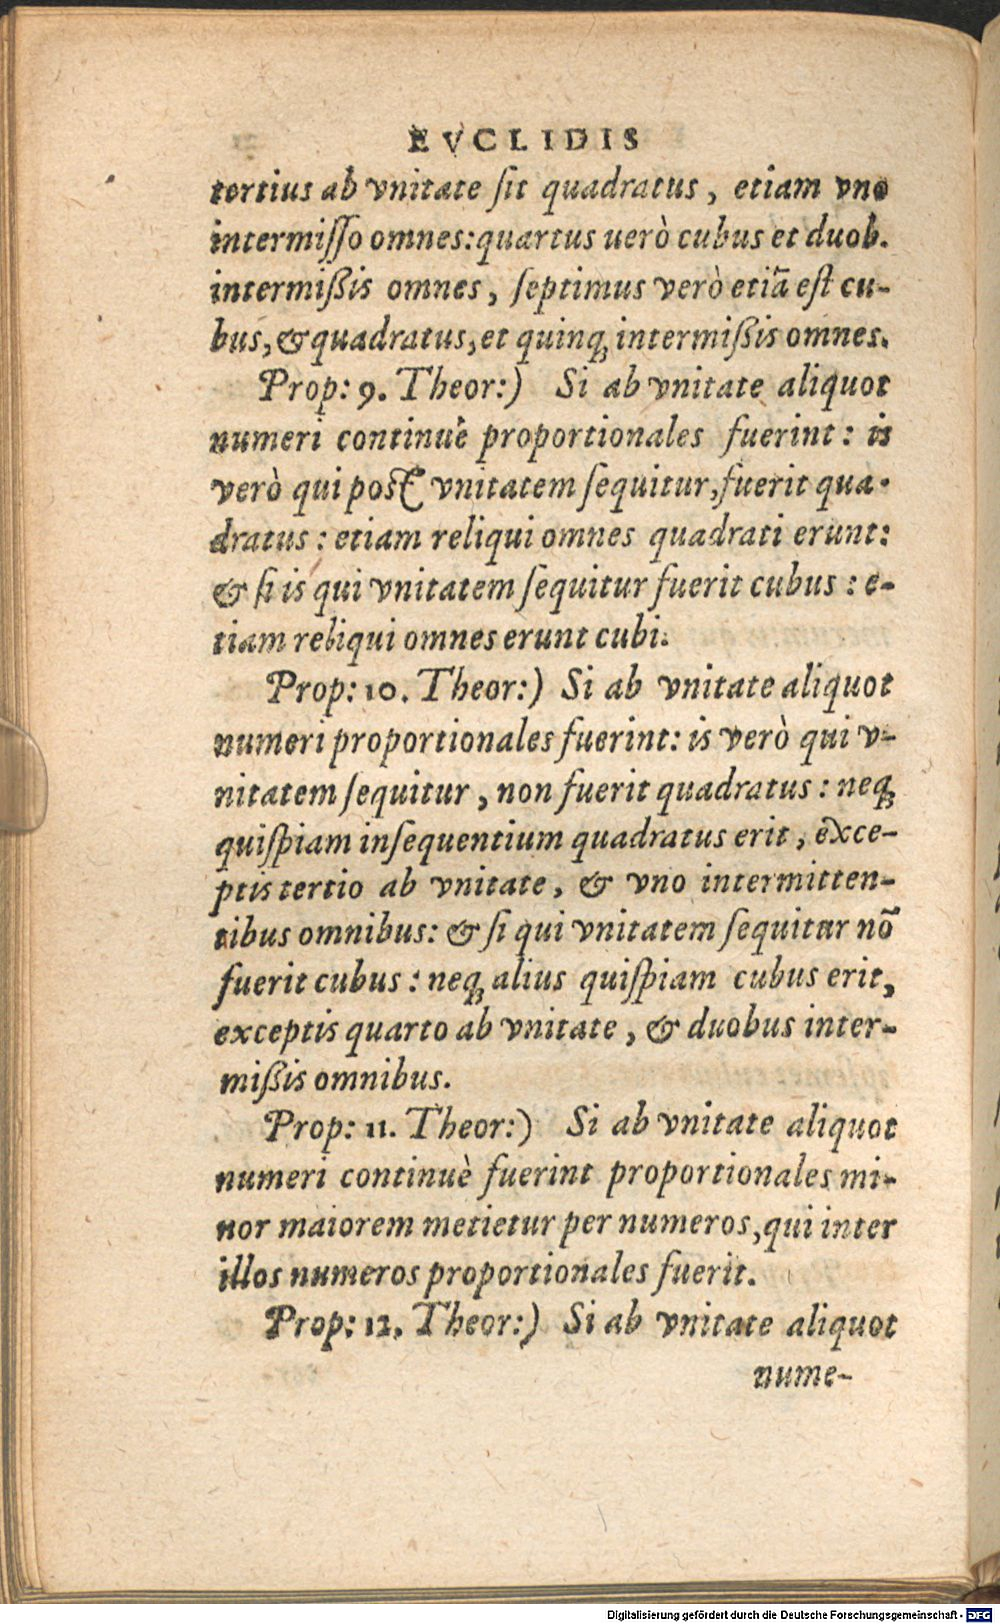 EVCLIDIS
tertius ab vnitate ſit quadratus, etiam vno
intermiſſo omnes: quartus uerò cubus et duob.
intermiſsis omnes, ſeptimus verò etiã eſt cu-
bus, & quadratus, et quinq; intermiſsis omnes.
Prop: 9. Theor:) Si ab vnitate aliquot
numeri continuè proportionales fuerint: is
verò qui post vnitatem ſequitur, fuerit qua-
dratus: etiam reliqui omnes quadrati erunt:
& ſi is qui vnitatem ſequitur fuerit cubus: e-
tiam reliqui omnes erunt cubi.
Prop: 10. Theor:) Si ab vnitate aliquot
numeri proportionales fuerint: is verò qui v-
nitatem ſequitur, non fuerit quadratus: neq;
quiſpiam inſequentium quadratus erit, exce-
ptis tertio ab vnitate, & vno intermitten-
tibus omnibus: & ſi qui vnitatem ſequitur nõ
fuerit cubus: neq; alius quiſpiam cubus erit,
exceptis quarto ab vnitate, & duobus inter-
miſsis omnibus.
Prop: 11. Theor:) Si ab vnitate aliquot
numeri continuè fuerint proportionales mi-
nor maiorem metietur per numeros, qui inter
illos numeros proportionales fuerit.
Prop: 12. Theor:) Si ab vnitate aliquot
nume-
Digitalisierung gefördert durch die Deutsche Forschungsgemeinschaft - DFG